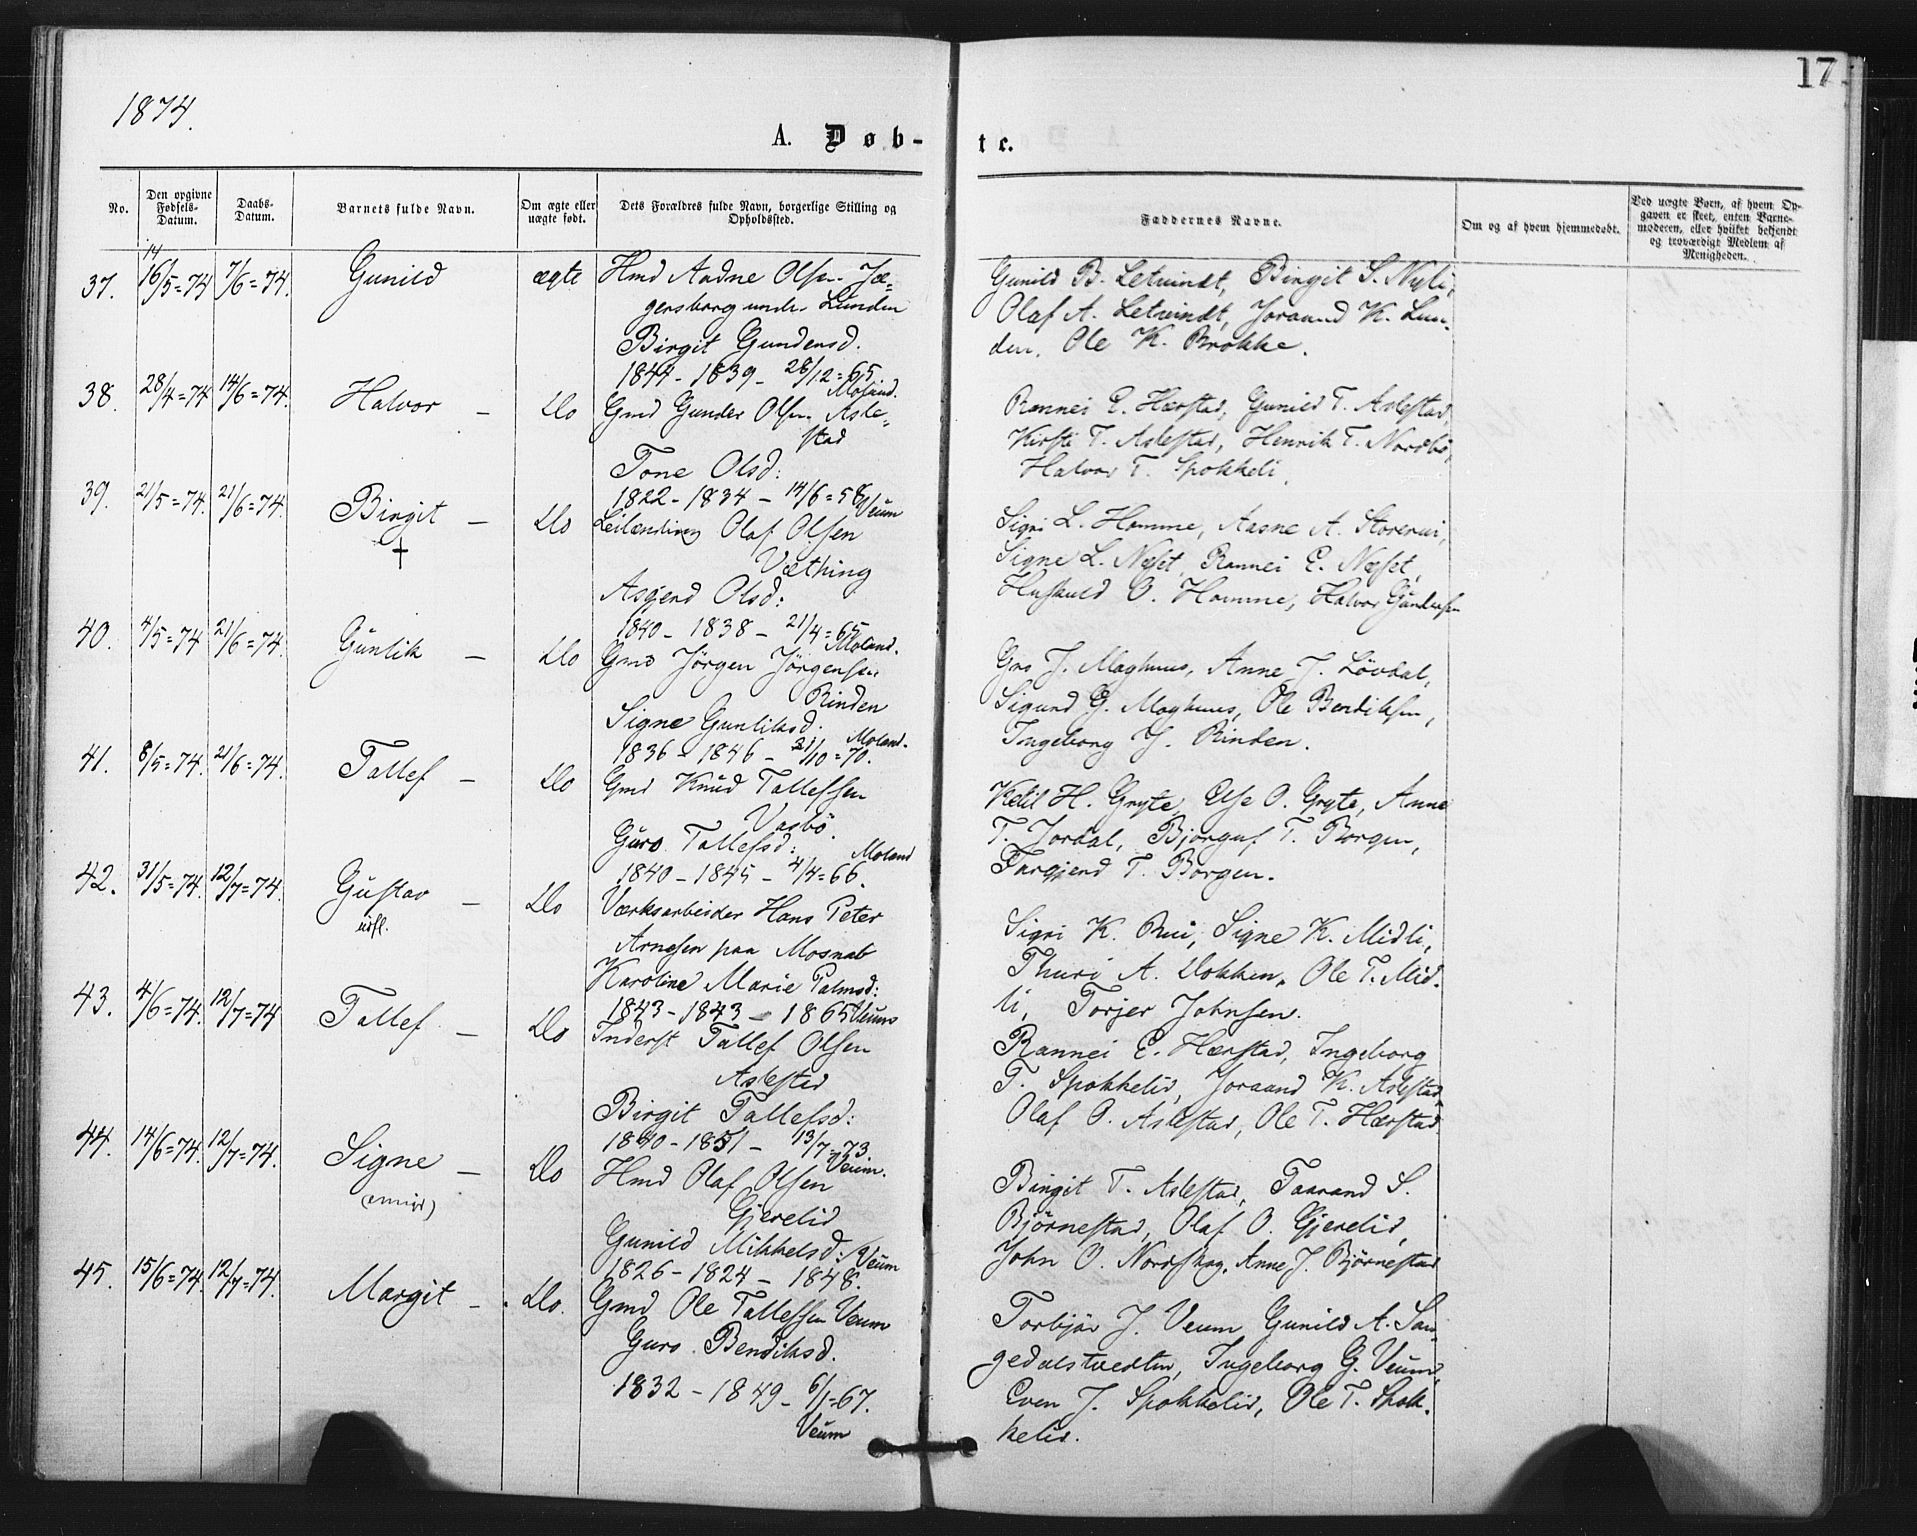 17
1874.
A. Døb-
te.
No.
Den opgivne Fødsels-Datum.
Daabs-Datum.
Barnets fulde Navn.
Om ægte eller uægte født.
Dets Forældres fulde Navn, borgerlige Stilling og Opholdssted.
Faddernes Navne.
Om og af hvem hjemmedøbt.
Ved uægte Børn, af hvem Opgaven er skeet, enten Barnemoderen, eller hvilket bekjendt og troværdigt Medlem af Menigheden.
14
37. 16/5=74 7/6=74. Gunild ægte Hmd Aadne Olsen Jæ-
gersborg under Lunden
Birgit Gundersd.
1844 - 1839 - 28/12=65
Moland.
Gunild B. Letvindt, Birgit S. Nyli,
Olaf A. Letvindt, Joraand K. Lun-
den, Ole K. Brokke.
38. 28/4=74 14/6=74. Halvor - Do Gmd Gunder Olsen Asle-
stad
Tone Olsd:
1822 - 1834 - 14/6=58
Veum
Rannei E. Hærstad, Gunild T. Aslestad,
Kirsti T. Aslestad, Henrik T. Nordbö,
Halvor T. Spokkeli.
39. 21/5=74. 21/6=74. Birgit - Do Leilending Olaf Olsen
†
Væthing
Asgierd Olsd:
1840 - 1838 - 21/4=65
Moland.
Sigri L. Homme, Aasne A. Storerui,
Signe L. Næset, Rannei E. Næset,
Huskuld O. Homme, Halvor Gundersen
40. 4/5=74 21/6=74. Gunlik - Do Gmd Jörgen Jörgensen
Rinden
Signe Gunliksd.
1836 - 1846 - 21/10=70.
Moland.
Gro J. Maghuus, Anne J. Lövdal,
Sigurd G. Moghuus, Ole Bendiksen,
Ingeborg J. Rinden.
41. 8/5=74. 21/6=74. Tallef - Do Gmd Knud Tallefsen
Vasbö.
Guro Tallefsd:
1840 - 1845 - 4/4=66.
Moland
Ketil H. Gryte, Else O. Gryte, Anne
T. Jordal, Bjorguf T. Borgen,
Targjerd T. Borgen.
42. 31/5=74. 12/7=74. Gustav - Do Værksarbeider Hans Peter
udfl.
Arnesen paa Mosnab
Karoline Marie Palmsd:
1843 - 1843 - 1865
Veum
Sigri K. Rui, Signe K. Midli,
Thuri A. Dokken, Ole T. Mid-
li, Torjer Johnsen.
43. 4/6=74. 12/7=74 Tallef - Do Inderst Tallef Olsen
Aslestad
Birgit Tallefsd:
1840 - 1851 - 13/7=73.
Veum.
Rannei E. Hærstad, Ingeborg
T. Spokkelid, Joraand K. Aslestad,
Olaf O. Aslestad, Ole T. Hærstad.
44. 14/6=74. 12/7=74. Signe - Do Hmd Olaf Olsen
Gjerelid
Gunild Mikkelsd:
1826 - 1824 - 1848.
Veum
Birgit T. Aslestad, Taarand S.
Björnestad, Olaf O. Gjerelid,
John O. Nordskog, Anne J. Björnestad
45. 15/6=74. 12/7=74. Margit - Do. Gmd Ole Tallefsen Veum
Guro Bendiksd.
1832 - 1849 - 6/1=67.
Veum
Torbjör J. Veum, Gunild A. San-
gedalstvedten, Ingeborg G. Veum,
Even J. Spokkelid, Ole T. Spok-
kelid.